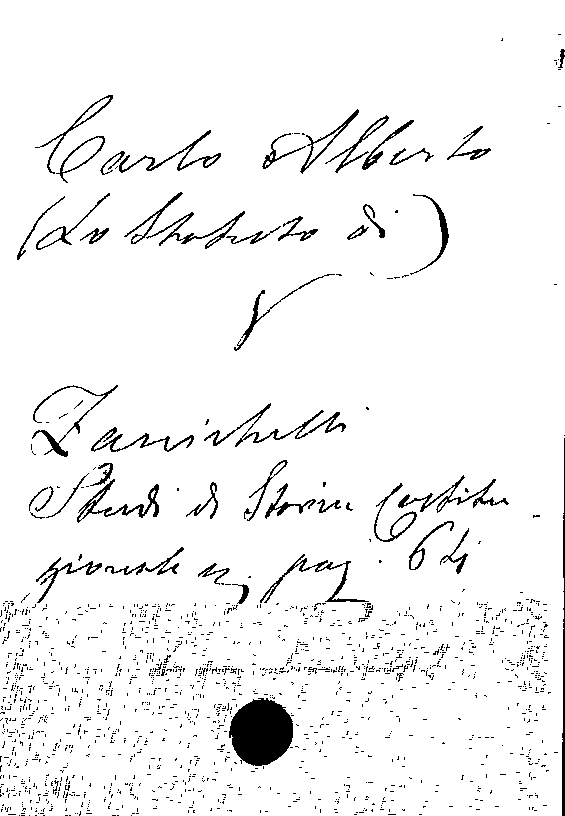 Carlo Alberto
(Lo Statuto di)
V
Zanichelli
Studi di Storia Costitu-
zionale pag. 64